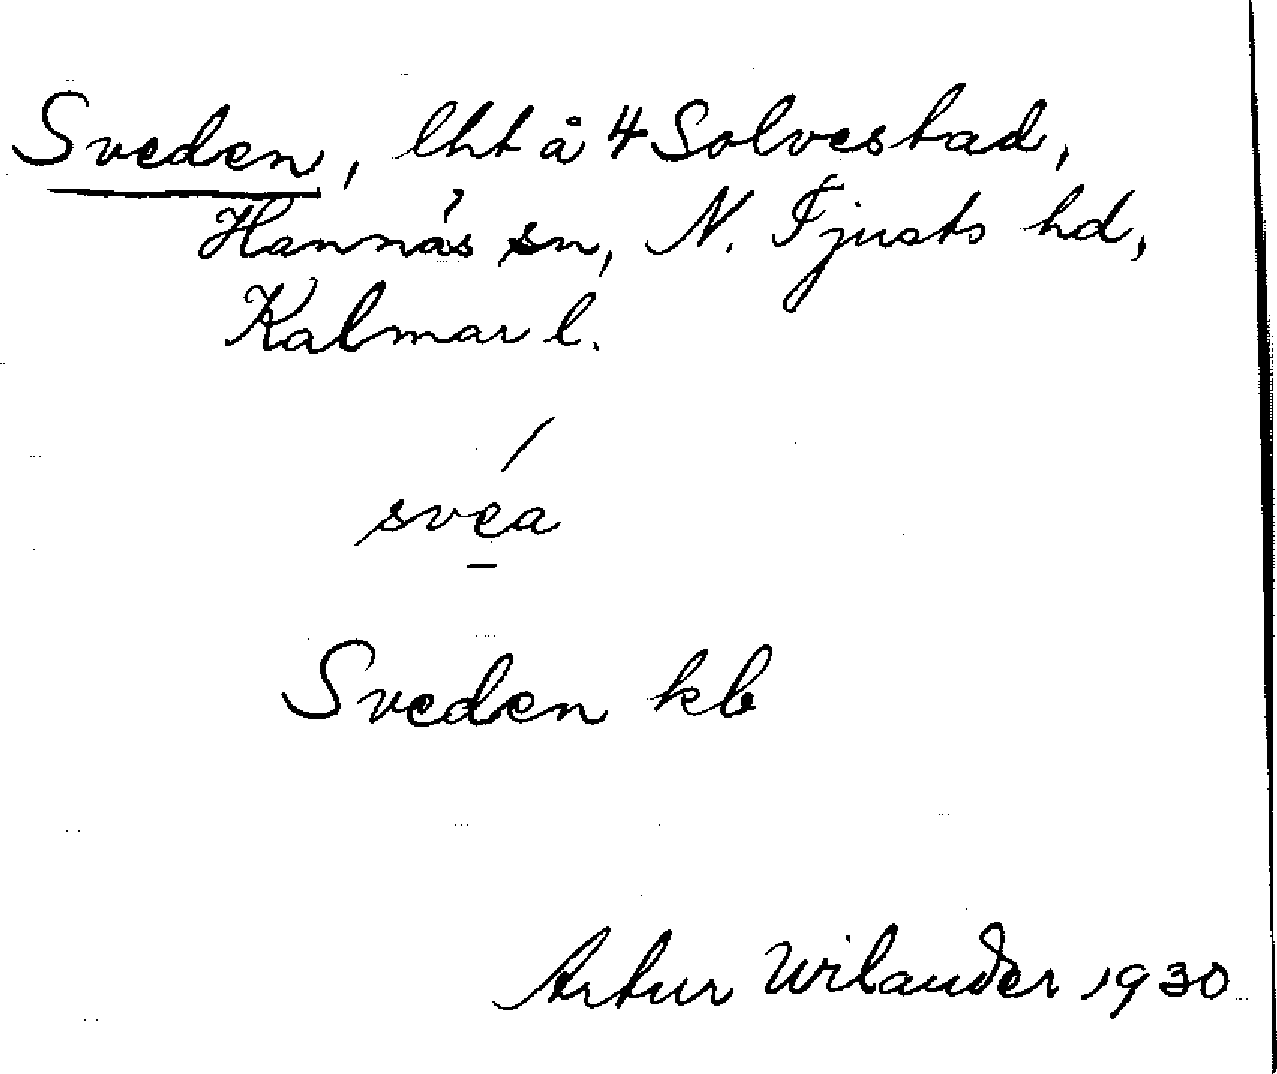 Sveden, lht å 4 Solvestad,
Hannäs sn, N. Tjusts hd,
Kalmar l.
svea
Sveden kb
Artur Wilander 1930